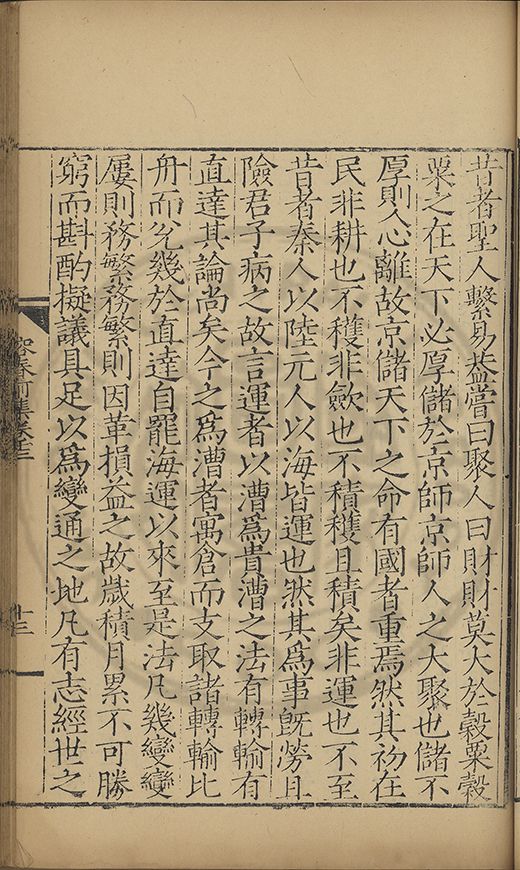 昔者聖人繫易葢嘗曰聚人曰財財莫大於穀粟穀
粟之在天下必厚儲於京師京師人之大聚也儲不
厚則人心離故京儲天下之命有國者重焉然其初在
民非耕也不穫非歛也不積穫且積矣非運也不至
昔者秦人以陸元人以海皆運也然其爲事旣勞且
險君子病之故言運者以漕爲貴漕之法有轉輸有
直達其論尚矣今之爲漕者寓倉而支取諸轉輸比
舟而兊幾於直達自罷海運以來至是法凡幾變變
屢則務繁務繁則因革損益之故歲積月累不可勝
窮而斟酌擬議具足以爲變通之地凡有志經世之
容春前集卷三
十三